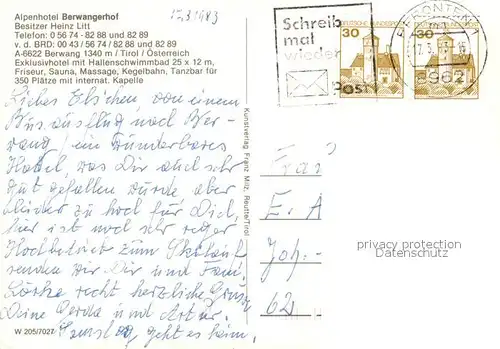 Alpenhotel Berwangerhof
Besitzer Heinz Litt
Telefon: 0 56 74 - 82 88 und 82 89
v. d. BRD: 00 43 / 56 74 / 82 88 und 82 89
A-6622 Berwang 1340 m / Tirol / Österreich
Exklusivhotel mit Hallenschwimmbad 25 x 12 m,
Friseur, Sauna, Massage, Kegelbahn, Tanzbar für
350 Plätze mit internat. Kapelle
17.3.1983
Liebes Elschen, von einem
Busausflug nach Ber-
wang, ein wunderbares
Hotel, was Dir auch sehr
gut gefallen würde aber
leider zu hoch für Dich,
hier ist noch sehr reger
Hochbetrieb zum Skilauf
senden wir Dir und Fam.
recht herzliche Grüsse
Deine Gerda und Artur.
Samstag geht es heim.
W 205/7027
Kunstverlag Franz Milz, Reutte/Tirol
Schreib
mal
wieder
Post
DEUTSCHE BUNDESPOST
30
30
PFRONTEN 1
17.3.83
8962
Frau
E. A
Joh.-
62
postkarte copyright
Datenschutz